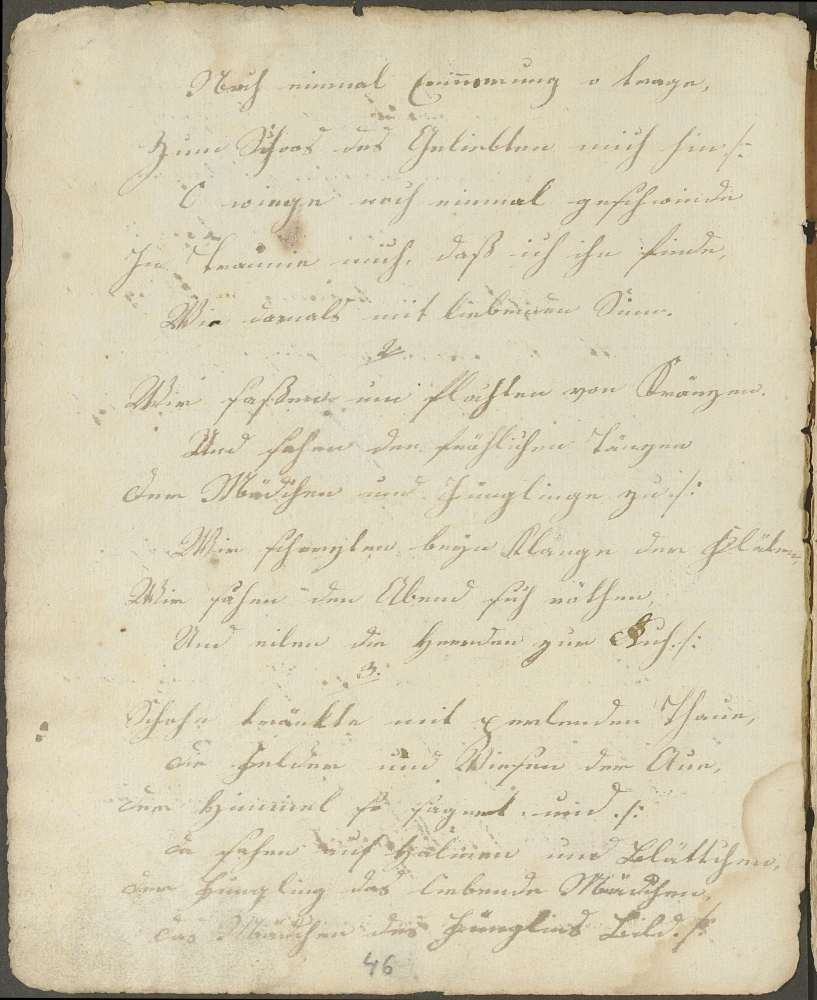 Noch einmal Erinnerung o trage,
Zum Schoos des Geliebten mich hin /:
O wiege noch einmal geschwinde
In Träume mich, daß ich ihn finde,
Wie damals mit liebenden Sinn.
2.
Wir saßen um flochten von Kränzen.
Und sahen den fröhlichen Tänzen
der Mädchen und Jünglinge zu /:
Wir scherzten beÿm Klange der Flöten,
Wir sahen den Abend sich röthen,
Und eilen die Heerden zur Ruh. /:
3.
Schohn tränkte mit perlenden Thaue,
die Felder und Wiesen der Aue,
der Himmel so segnend und /:
da sahen auf Halmen und Blättchen,
der Jüngling das liebende Mädchen,
das Mädchen des Jünglings Bild. /:
46